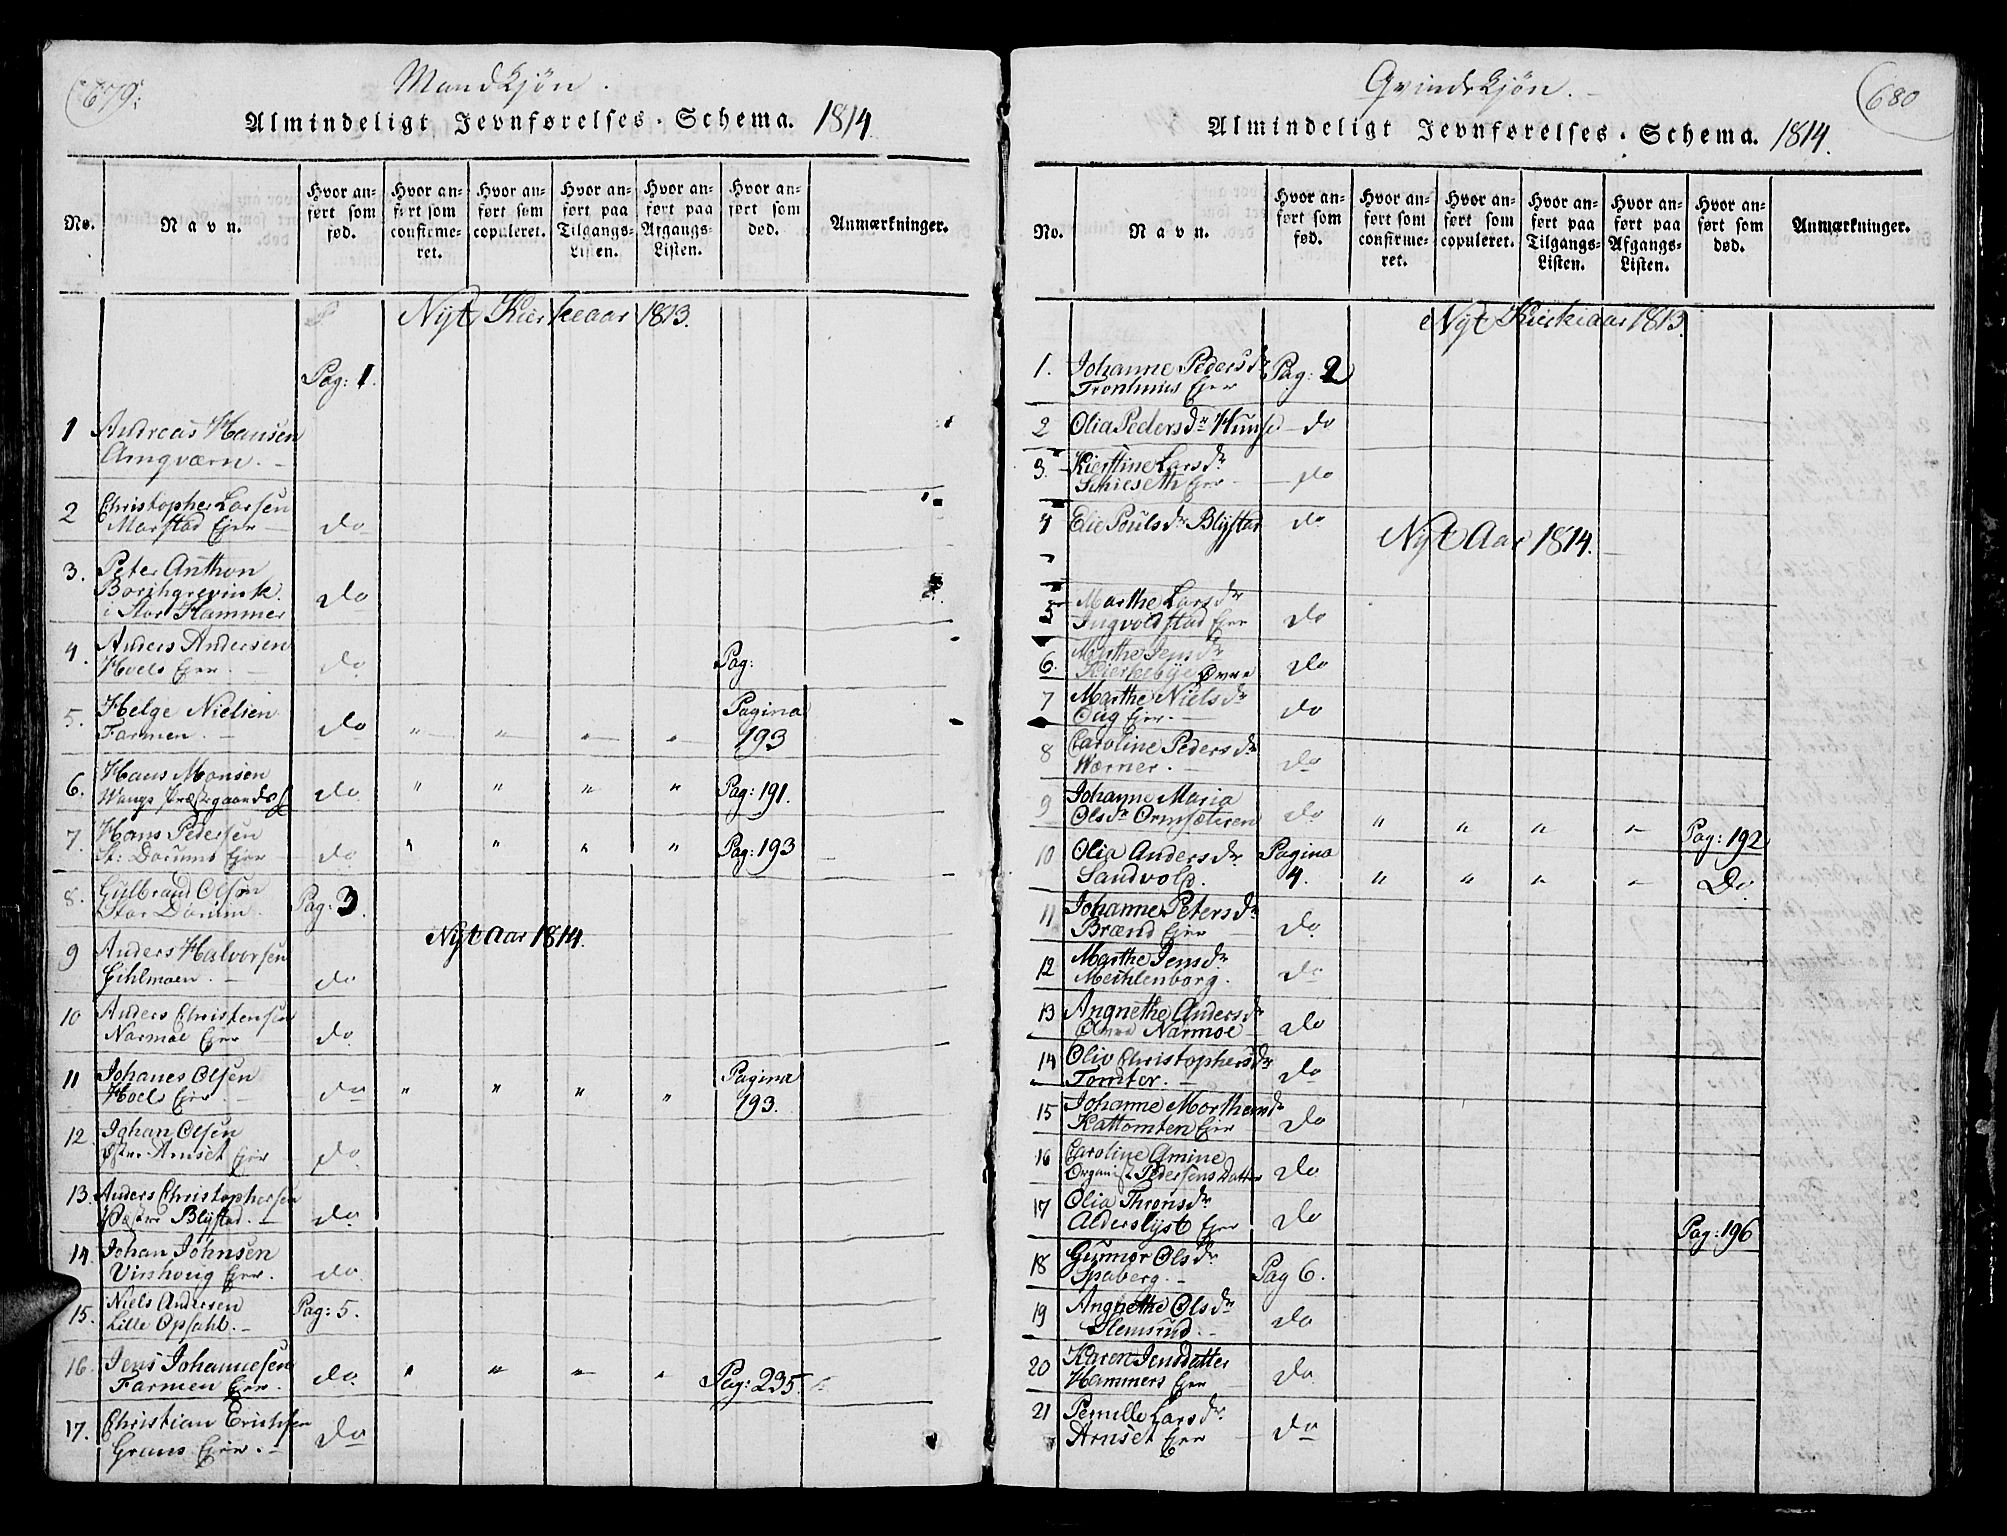 679.
Mandkjøn.
Almindeligt Jevnførelses-Schema. 1814.
No.
Navn.
Hvor an-
ført som
fød.
Hvor an-
ført som
confirme-
ret.
Hvor an-
ført som
copuleret.
Hvor an-
ført paa
Tilgangs-
Listen.
Hvor an-
ført paa
Afgangs-
Listen.
Hvor an-
ført som
død.
Anmærkninger.
Nyt Kierkeaar 1813.
Pag: 1.
1 Andreas Hansen
Arngværn.
2 Christopher Larsen
Marstad Ejer do
3. Peter Anthon
Borchgrevink
i Stor Hammer do
4. Anders Andersen
Hoels Ejer do Pag:
5. Helge Nielsen
Farmen. do " " " " Pagina
193
6. Hans Monsen
Wangs Præstegaard do " " " " Pag: 191.
7. Hans Pedersen
St: Dørums Ejer do " " " " Pag: 193
8. Gulbrand Olsen
Stor Dørum Pag: 3.
Nyt Aar 1814.
9 Anders Halvorsen
Gihlmoen. do
10 Anders Christensen
Narmoe Ejer do
11 Johanes Olsen
Hoels Ejer do " " " " Pagina
193.
12. Johan Olsen
Østre Arnset Ejer do
13. Anders Christophersen
Væstre Blystad. do
14. Johan Johnsen
Vinhoug Ejer. do
15. Niels Andersen
Lille Opsahl. Pag: 5.
16. Jens Johannesen
Farmen Ejer. do " " " " Pag: 235.
17. Christian Erichsen
Gruns Ejer. do
680
Qvindekjøn.
Almindeligt Jevnførelses-Schema. 1814.
No.
Navn.
Hvor an-
ført som
fød.
Hvor an-
ført som
confirme-
ret.
Hvor an-
ført som
copuleret.
Hvor an-
ført paa
Tilgangs-
Listen.
Hvor an-
ført paa
Afgangs-
Listen.
Hvor an-
ført som
død.
Anmærkninger.
Nyt Kierkeaar 1813.
1. Johanne Pedersdr Pag: 2
Tronhuus Ejer
2 Olia Pedersdr Hunsed do
3. Kierstine Larsdr
Schieseth Ejer do
4 Elie Poulsdr Blystad do
Nyt Aar 1814.
5 Marthe Larsdr
Ingvoldstad Ejer do
6. Marthe Jensdr
Kierkebye Øvre do
7 Marthe Nielsdr
Oug Ejer. do
8 Caroline Pedersdr
Wærner. do
9 Johanne Maria
Olsdr Ormsæteren do " " " " Pag: 192
10 Olia Andersdr Pagina
Sandvold. 4. " " " " Do
11 Johanne Petersdr
Brænd Ejer do
12 Marthe Jensdr
Mechlenborg. do
13 Angnethe Andersdr
Øvre Narmoe do
14 Oliv Christophersdr
Tomter. do
15 Johanne Morthensdr
Kattomten Ejer do
16 Caroline Amine
Organist Pedersens Datter do
17 Olia Thronsdr
Alderslyst Ejer do Pag: 196
18 Gunnor Olsdr
Spaberg. Pag 6.
19 Angnethe Olsdr
Slemsrud. do
20 Karen Jensdatter
Hammers Ejer do
21 Pernille Larsdr
Arnset Ejer do